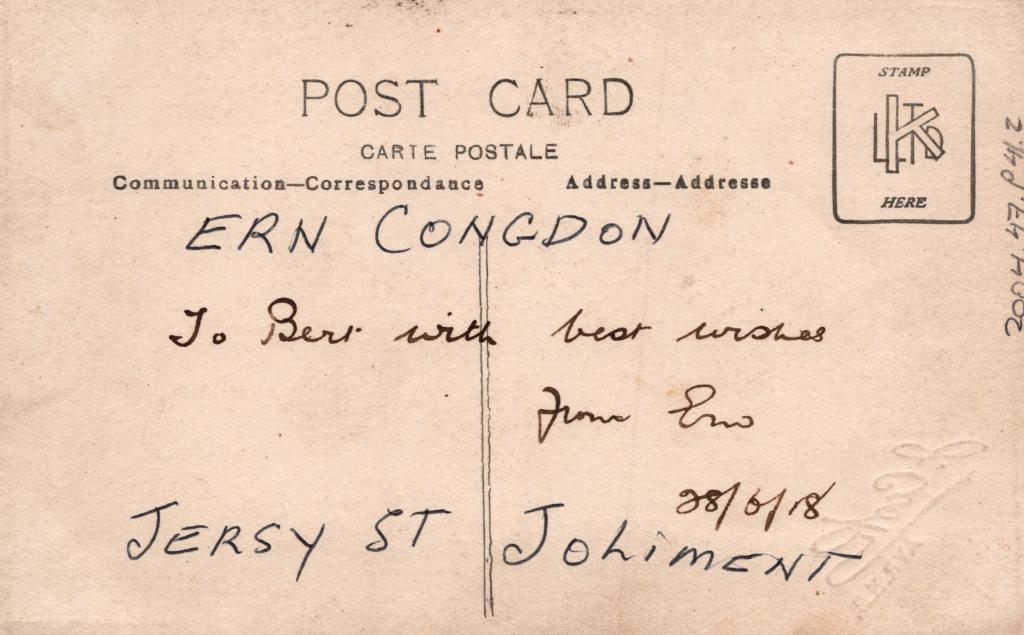 POST CARD
CARTE POSTALE
Communication—Correspondance
Address—Addresse
STAMP
HERE
ERN CONGDON
To Bert with best wishes
from Ern
28/6/18
JERSY ST JOLIMENT